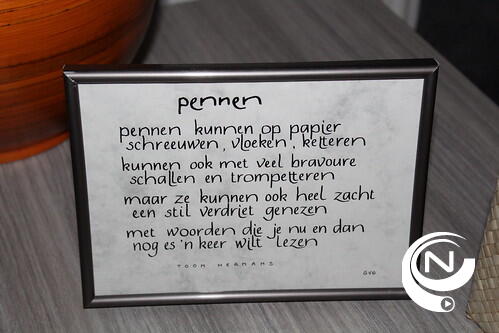 pennen
pennen kunnen op papier
schreeuwen, vloeken, ketteren
kunnen ook met veel bravoure
schallen en trompetteren
maar ze kunnen ook heel zacht
een stil verdriet genezen
met woorden die je nu en dan
nog es 'n keer wilt lezen
TOON HERMANS
GVG
N